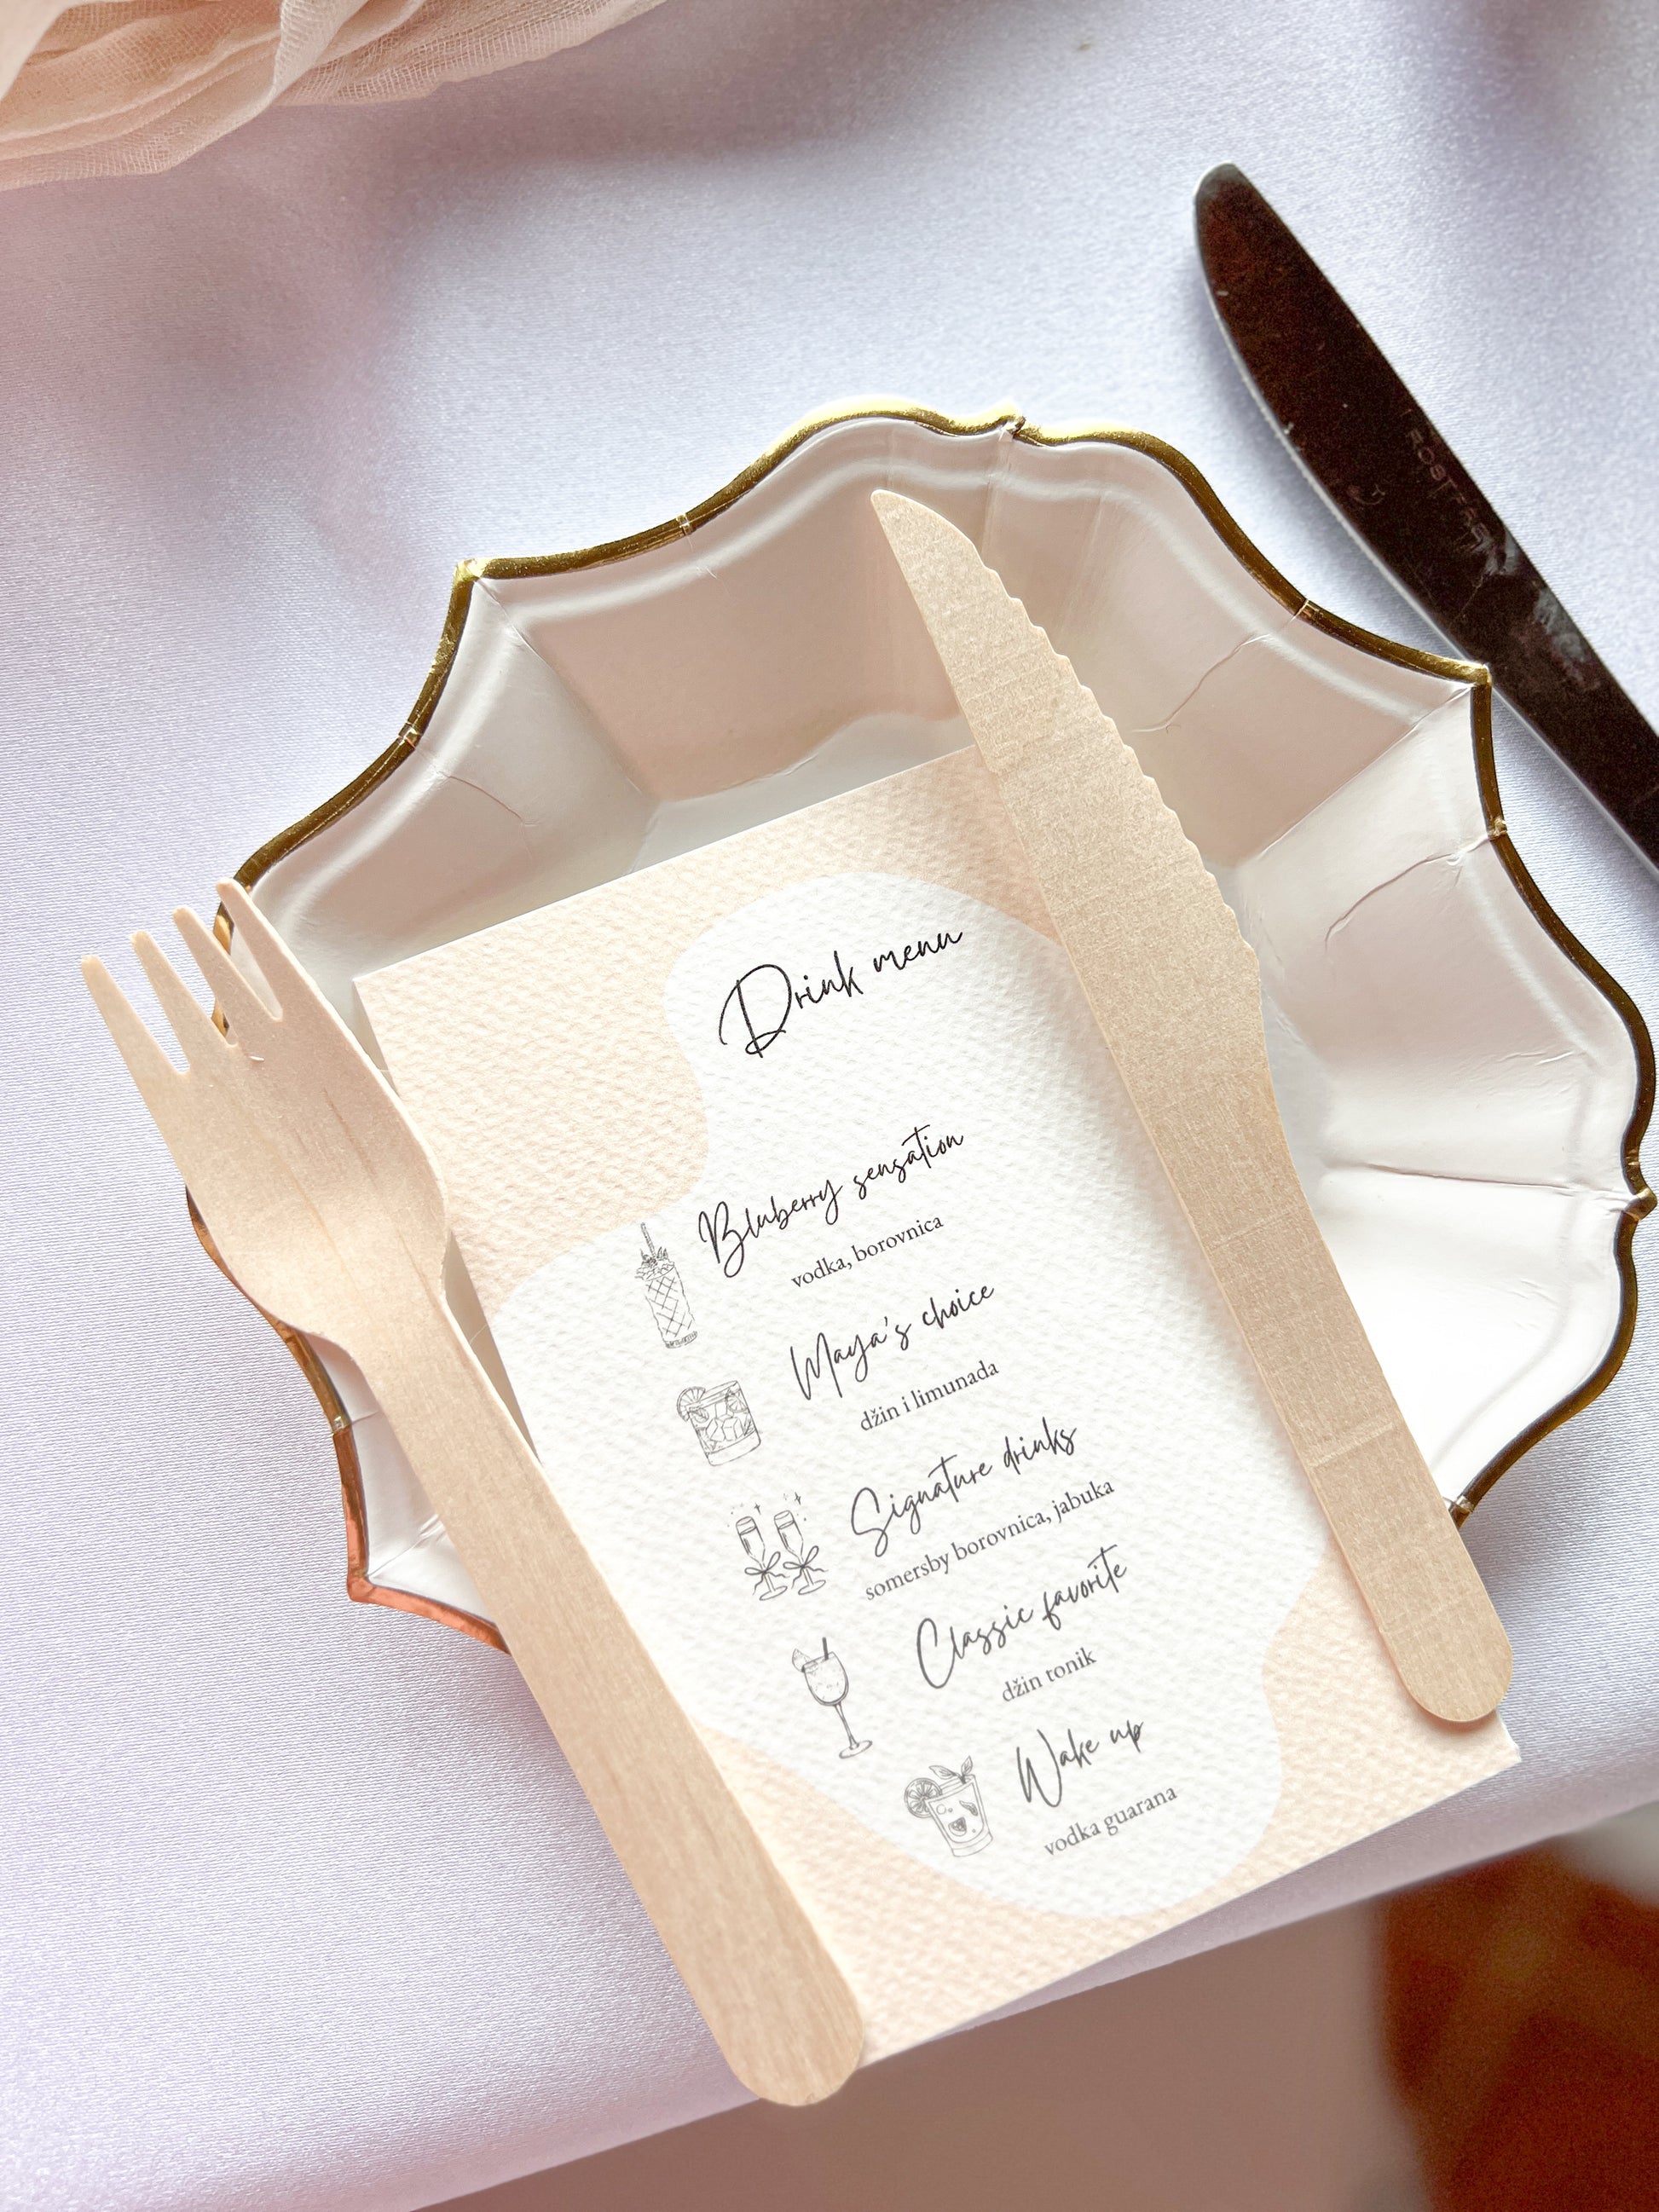 Drink menu
Bluberry sensation
vodka, borovnica
Maya's choice
džin i limunada
Signature drinks
somersby borovnica, jabuka
Classic favorite
džin tonik
Wake up
vodka guarana